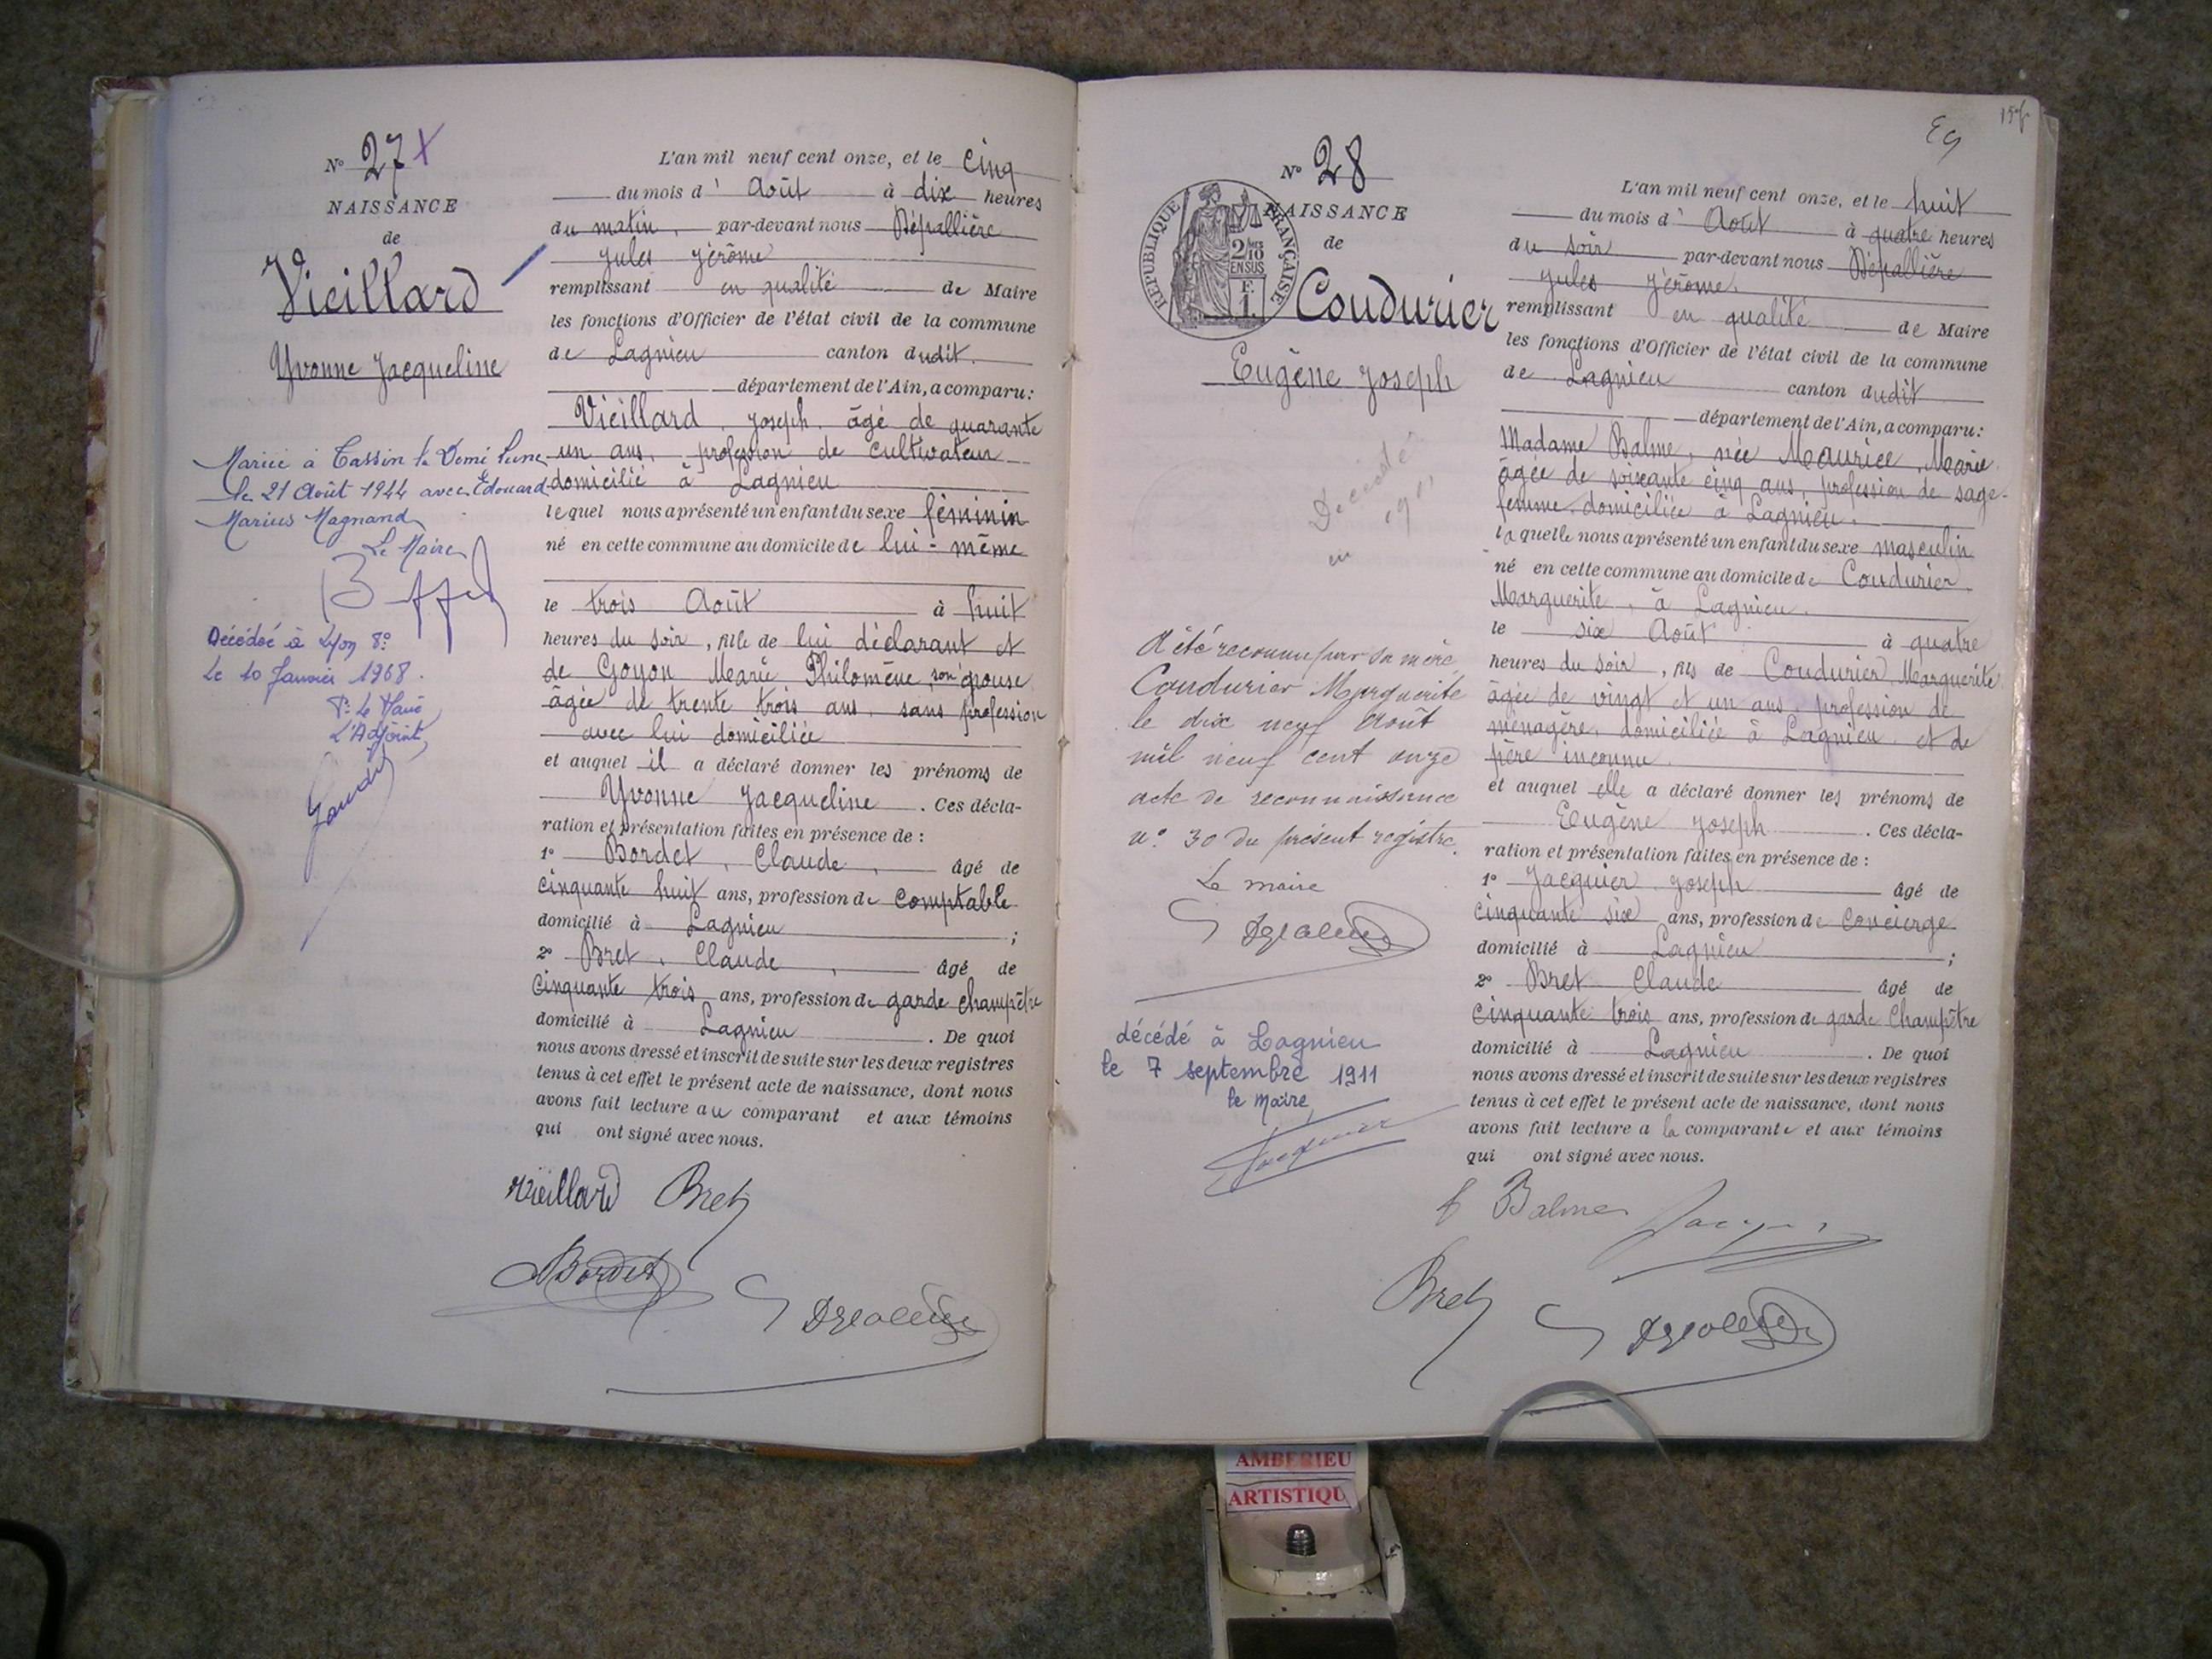 N° 27 X
NAISSANCE
de
Vieillard
Yvonne Jacqueline
Mariée à Tassin la Demi Lune
le 21 Août 1944 avec Edouard
Marius Magnand
Le Maire
Décédée à Lyon 8e
Le 10 Janvier 1968.
Pr Le Maire
L'Adjoint,
L'an mil neuf cent onze, et le cinq
du mois d' Août à dix heures
du matin, par-devant nous Dépallière
Jules Jérôme
remplissant en qualité de Maire
les fonctions d'Officier de l'état civil de la commune
de Lagnieu canton dudit.
département de l'Ain, a comparu:
Vieillard, Joseph, âgé de quarante
un ans, profession de cultivateur
domicilié à Lagnieu
lequel nous a présenté un enfant du sexe féminin
né en cette commune au domicile de lui-même
le trois Août à huit
heures du soir, fille de lui déclarant et
de Goyon Marie Philomène, son épouse
âgée de trente trois ans, sans profession
avec lui domiciliée
et auquel il a déclaré donner les prénoms de
Yvonne Jacqueline. Ces décla-
ration et présentation faites en présence de:
1° Bordet, Claude, âgé de
cinquante huit ans, profession de comptable
domicilié à Lagnieu;
2° Bret, Claude, âgé de
cinquante trois ans, profession de garde champêtre
domicilié à Lagnieu. De quoi
nous avons dressé et inscrit de suite sur les deux registres
tenus à cet effet le présent acte de naissance, dont nous
avons fait lecture au comparant et aux témoins
qui ont signé avec nous.
Vieillard Bret
Bordet
N° 28
NAISSANCE
de
RÉPUBLIQUE FRANÇAISE
2/10
EN SUS
F.
1.
Coudurier
Eugène Joseph
Décédé
en 1911
A été reconnu par sa mère
Coudurier Marguerite
le dix neuf Août
mil neuf cent onze
acte de reconnaissance
n° 30 du présent registre.
Le maire
décédé à Lagnieu
le 7 septembre 1911
le maire,
L'an mil neuf cent onze, et le huit
du mois d' Août à quatre heures
du soir par-devant nous Dépallière
Jules Jérôme.
remplissant en qualité de Maire
les fonctions d'Officier de l'état civil de la commune
de Lagnieu canton dudit
département de l'Ain, a comparu:
Madame Balme, née Maurice, Marie
âgée de soixante cinq ans, profession de sage-
femme, domiciliée à Lagnieu.
laquelle nous a présenté un enfant du sexe masculin
né en cette commune au domicile de Coudurier
Marguerite, à Lagnieu.
le six Août à quatre
heures du soir, fils de Coudurier Marguerite
âgée de vingt et un ans, profession de
ménagère, domiciliée à Lagnieu et de
père inconnu.
et auquel elle a déclaré donner les prénoms de
Eugène Joseph. Ces décla-
ration et présentation faites en présence de:
1° Jacquier Joseph âgé de
cinquante six ans, profession de Concierge
domicilié à Lagnieu;
2° Bret Claude âgé de
cinquante trois ans, profession de garde Champêtre
domicilié à Lagnieu. De quoi
nous avons dressé et inscrit de suite sur les deux registres
tenus à cet effet le présent acte de naissance, dont nous
avons fait lecture a la comparante et aux témoins
qui ont signé avec nous.
f Balme
Bret
AMBERIEU
ARTISTIQU